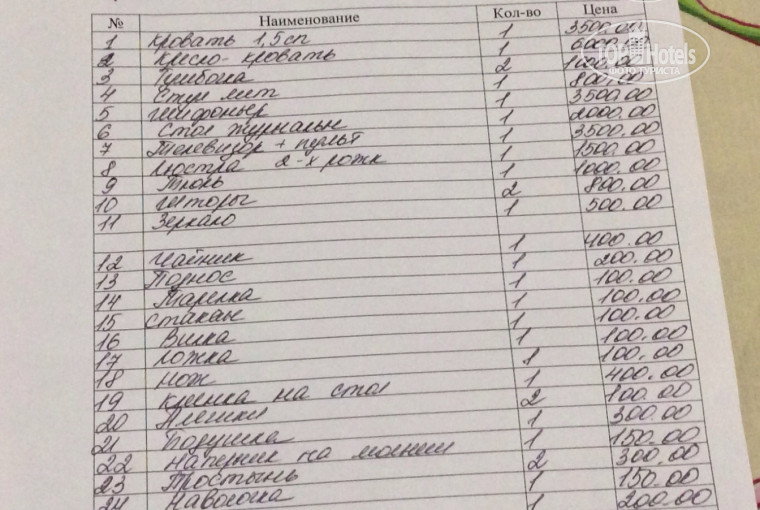 № Наименование Кол-во Цена
1 Кровать 1,5сп 1 3500.00
2 Кресло-кровать 1 6000.00
3 Тумбочка 2 1000.00
4 Стул мет 1 800.00
5 Шифоньер 1 3500.00
6 Стол журнальн 1 2000.00
7 Телевизор + пульт 1 3500.00
8 Люстра 2-х рожк 1 1500.00
9 Тюль 1 1000.00
10 Шторы 2 800.00
11 Зеркало 1 500.00
12 Чайник 1 400.00
13 Поднос 1 200.00
14 Тарелка 1 100.00
15 Стакан 1 100.00
16 Вилка 1 100.00
17 Ложка 1 100.00
18 Нож 1 100.00
19 Клеенка на стол 1 400.00
20 Плечики 2 100.00
21 Подушка 1 300.00
22 Наперник на молнии 1 150.00
23 Простынь 2 300.00
24 Наволочка 1 150.00
1 200.00
TOPHotels
ФОТО ТУРИСТА